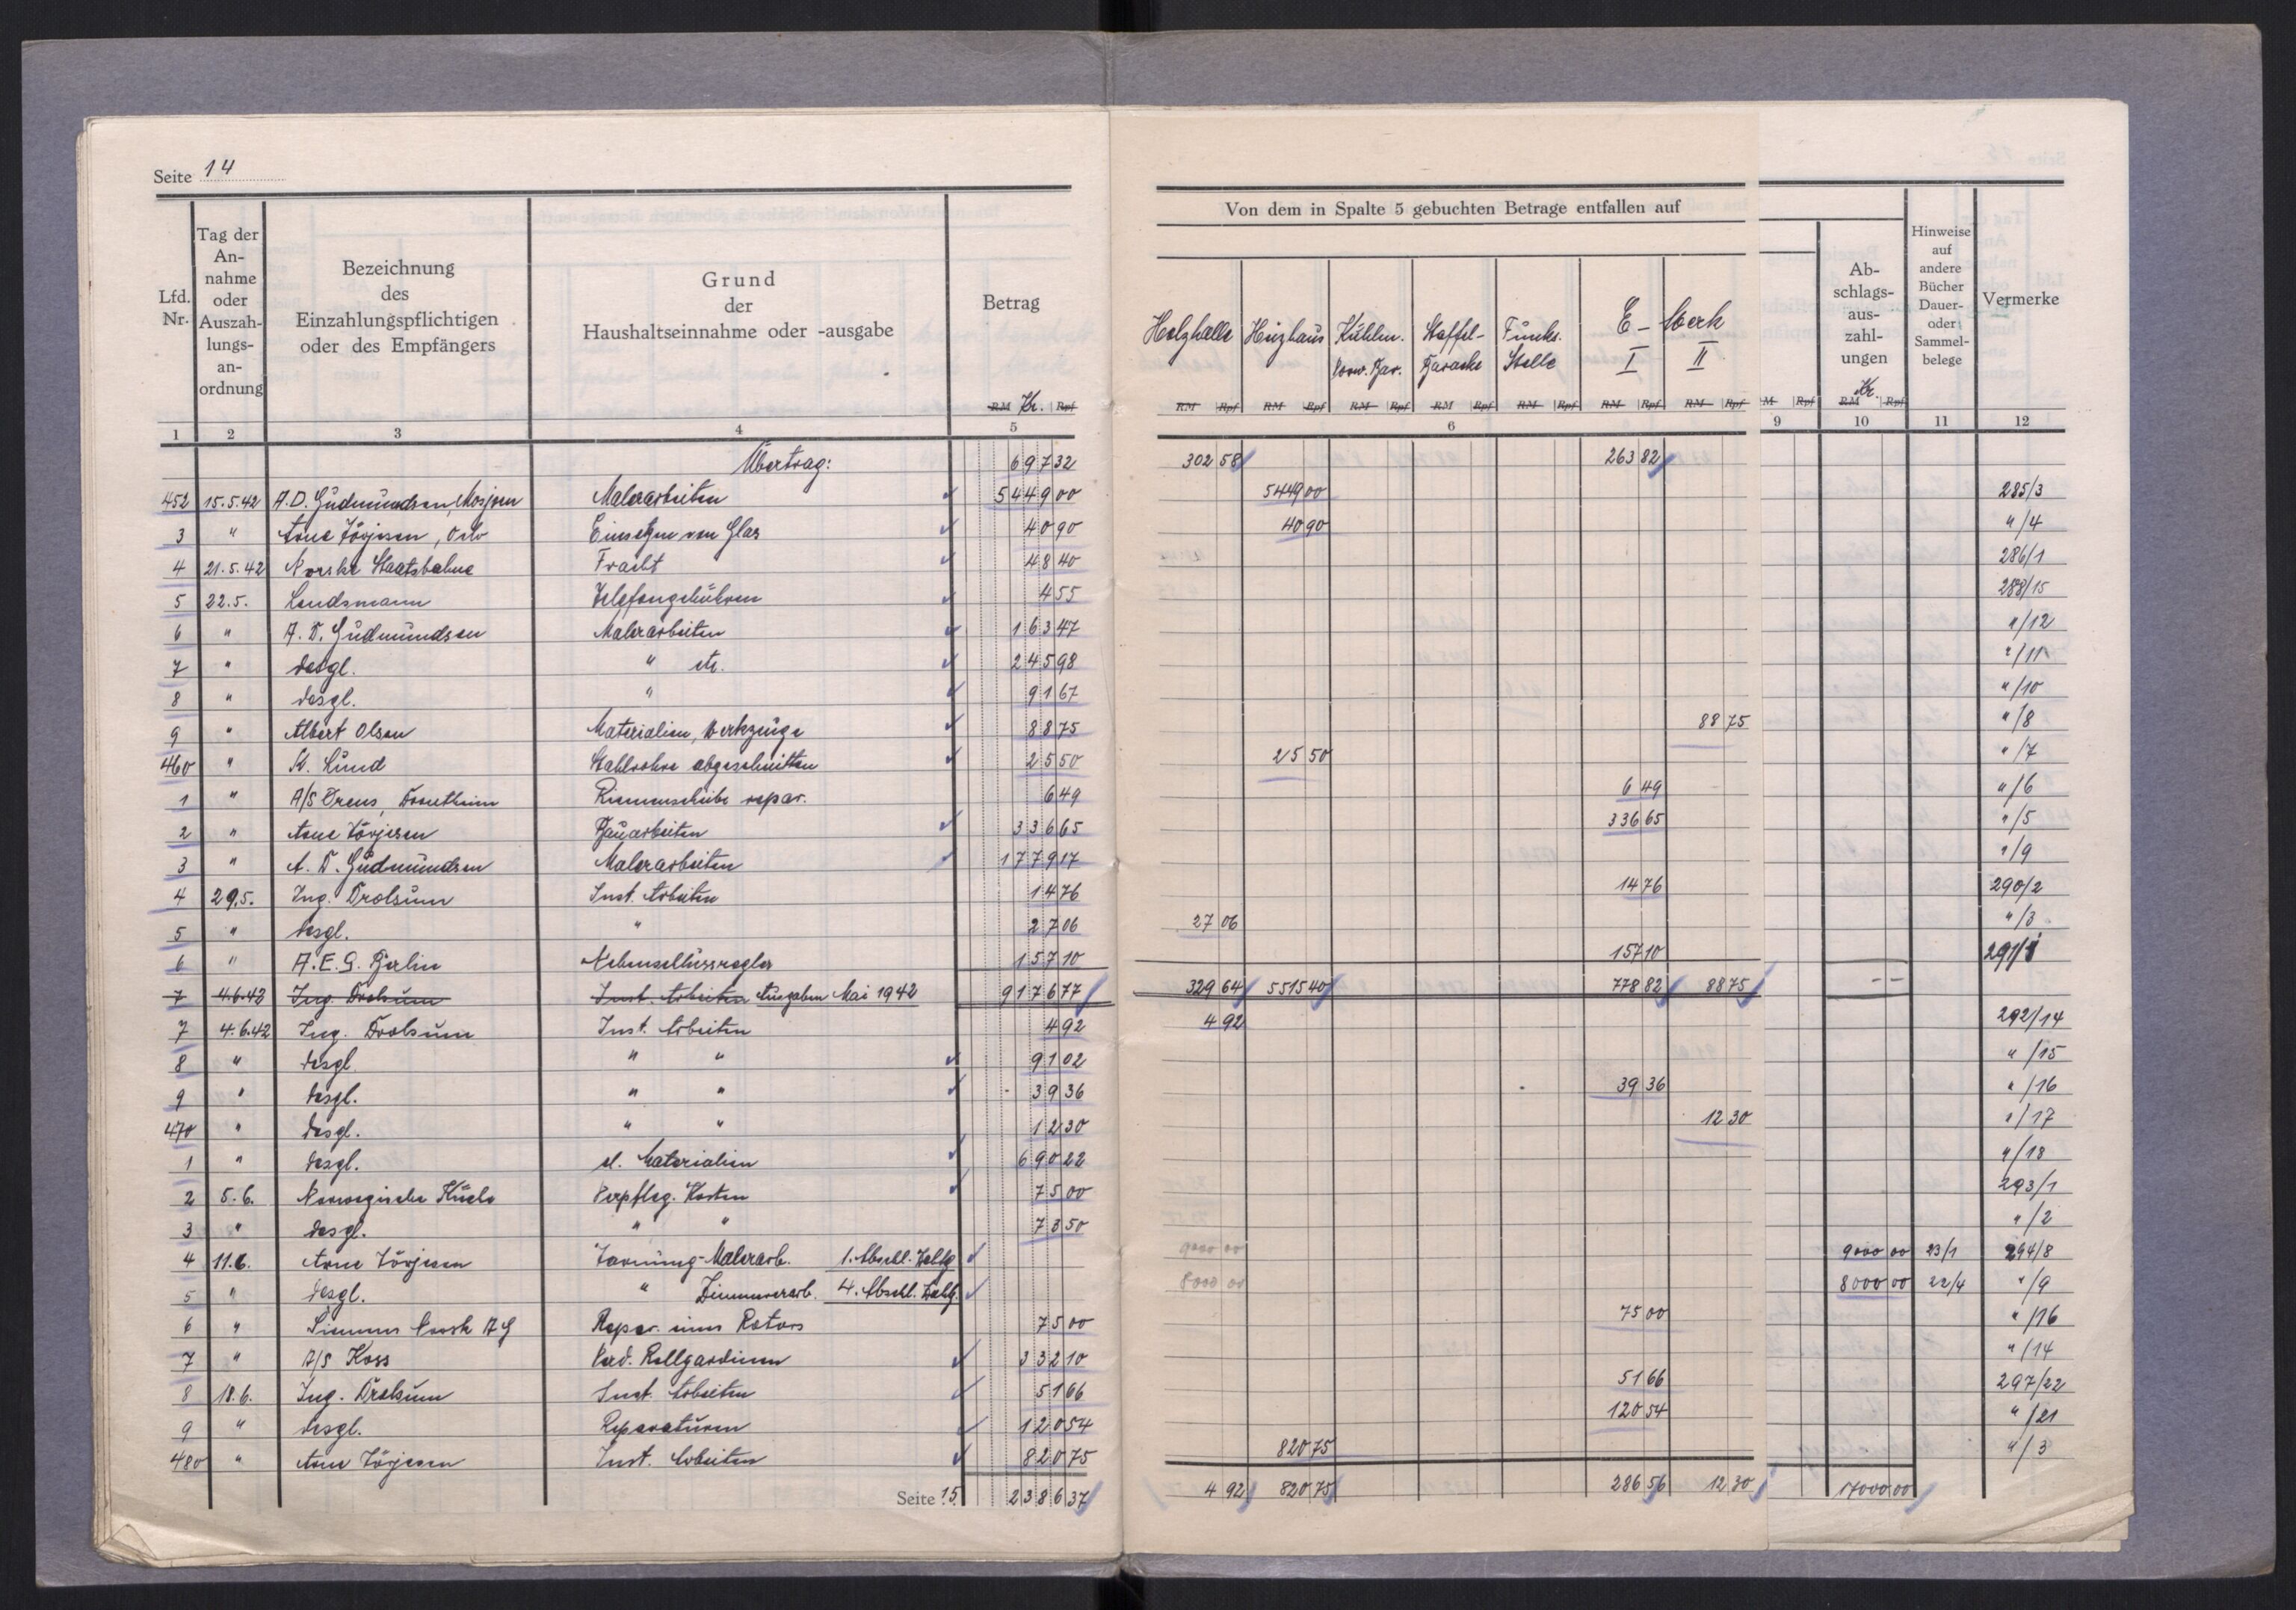 Seite 14
Lfd. Nr.
Tag der An- nahme oder Auszah- lungs- an- ordnung
Bezeichnung des Einzahlungspflichtigen oder des Empfängers
Grund der Haushaltseinnahme oder -ausgabe
Betrag
RM Kr. Rpf
1 2 3 4 5
Übertrag: 697 32
452 15.5.42 A.D. Gudmundsen, Mosjoen Malerarbeiten 5449 00
3 " Arne Jörjesen, Oslo Einsetzen von Glas 40 90
4 21.5.42 Norske Staatsbahne Fracht 48 40
5 22.5. Lendsmann Telefongebühren 4 55
6 " A.D. Gudmundsen Malerarbeiten 163 47
7 " desgl. " etc. 245 98
8 " desgl. " 91 67
9 " Albert Olsen Materialien, Werkzeuge 88 75
460 " K. Lund Stahlrohre abgeschnitten 25 50
1 " A/S Drontheim Riemenscheibe repar. 6 49
2 " Arne Jörjesen Bauarbeiten 336 65
3 " A.D. Gudmundsen Malerarbeiten 1779 17
4 29.5. Ing. Drolsum Inst. Arbeiten 14 76
5 " desgl. " 27 06
6 " A.E.G. Berlin Nebenschlussregler 157 10
7 4.6.42 Ing. Drolsum Inst. Arbeiten Ausgaben Mai 1942 9176 77
7 4.6.42 Ing. Drolsum Inst. Arbeiten 4 92
8 " desgl. " " 91 02
9 " desgl. " " 39 36
470 " desgl. " " 12 30
1 " desgl. el. Materialien 690 22
2 5.6. Norwegische Küche Verpfleg. Kosten 75 00
3 " desgl. " " 73 50
4 11.6. Arne Jörjesen Malerarb. 1. Abschl. Zahlg.
5 " desgl. " Zimmerarb. 4. Abschl. Zahlg.
6 " Siemens Norsk AG Repar. eines Rotors 75 00
7 " A/S Koss Verd. Rollgardinen 332 10
8 18.6. Ing. Drolsum Inst. Arbeiten 51 66
9 " desgl. Reparaturen 120 54
480 " Arne Jörjesen Inst. Arbeiten 820 75
Seite 15 2386 37
Von dem in Spalte 5 gebuchten Betrage entfallen auf
Holzhalle Heizhaus Kühlm. Staffel- Baracke Funks. Stelle E-Werk I II
RM Rpf RM Rpf RM Rpf RM Rpf RM Rpf RM Rpf RM Rpf
6
302 58 263 82
5449 00
40 90
88 75
25 50
6 49
336 65
14 76
27 06
157 10
329 64 5515 40 778 82 88 75
4 92
39 36
12 30
9000 00
8000 00
75 00
51 66
120 54
820 75
4 92 820 75 286 56 12 30
Ab- schlags- aus- zahl- ungen
Hinweise auf andere Bücher Dauer- oder Sammel- belege
Vermerke
M Rpf Kr. RM Rpf
9 10 11 12
285/3
"/4
286/1
288/15
"/12
"/11
"/10
"/8
"/7
"/6
"/5
"/9
290/2
"/3
291/1
--
292/14
"/15
"/16
"/17
"/18
293/1
"/2
9000 00 23/1 294/8
8000 00 22/4 "/9
"/16
"/14
297/22
"/21
"/3
17000 00